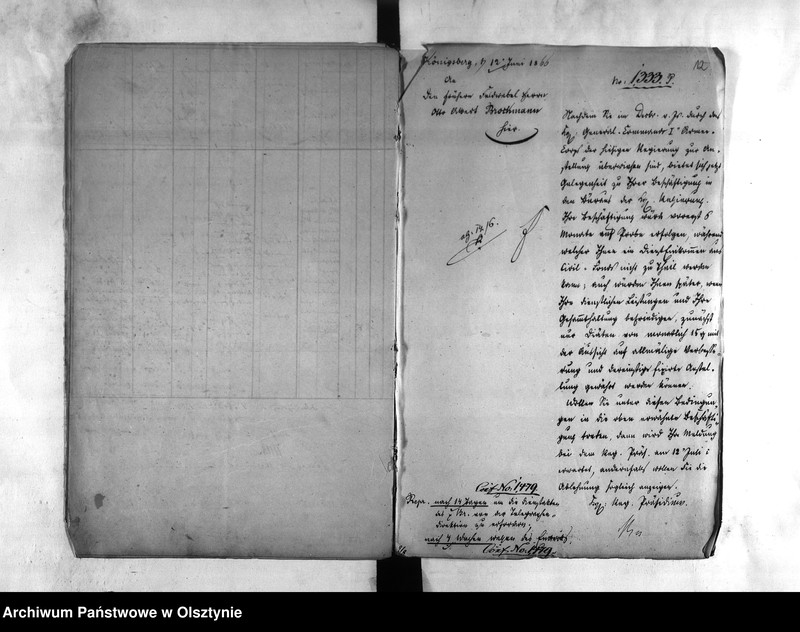 Königsberg, d 12 Juni 1866
An
den früheren Feldwebel Herrn
Otto Albert Brockmann
hier.
No. 1333. P.
Nachdem Sie im Decbr. v. Js. durch das
Kgl. General-Commando I Armee-
Corps der hiesigen Regierung zur An-
stellung überwiesen sind, bietet sich jetzt
Gelegenheit zu Ihrer Beschäftigung in
den Büreaus der Kgl. Regierung.
Ihre Beschäftigung würde vorerst 6
Monate auf Probe erfolgen, während
welcher Ihnen ein Diensteinkommen aus
Civil-Fonds nicht zu Theil werden
kann; auch würden Ihnen später, wenn
Ihre dienstlichen Leistungen und Ihre
Gesammthaltung befriedigen, zunächst
nur Diäten von monatlich 15 mit
der Aussicht auf allmälige Verbesse-
rung und dereinstige fixirte Anstel-
lung gewährt werden können.
Wollen Sie unter diesen Bedingun-
gen in die oben erwähnte Beschäfti-
gung treten, dann wird Ihre Meldung
bei dem Reg. Präs. am 12 Juli c
erwartet, andernfalls wollen Sie die
Ablehnung sogleich anzeigen.
Kgl. Reg. Präsidium.
Conf. No. 1479.
nach 14 Tagen um die Dienstakten
des von der Telegraphen-
direktion zu erfordern;
nach 4 Wochen wegen des Eintritts
Conf. No. 1479.
Archiwum Państwowe w Olsztynie